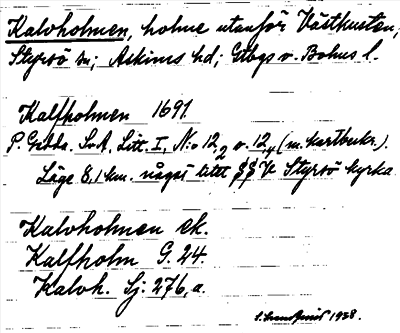 Kalvholmen, holme utanför Västkusten,
Styrsö sn; Askims hd; Gtbgs o. Bohus l.
Kalfholmen 1691
P. Gedda. S.A. Litt. I, N:o 12,2 o. 12,4 (m. kartbeskr.).
Läge 8,1 km. något litet S V Styrsö kyrka
Kalvholmen ek.
Kalfholm G. 24.
Kalvh. Sj: 276, a.
1938.